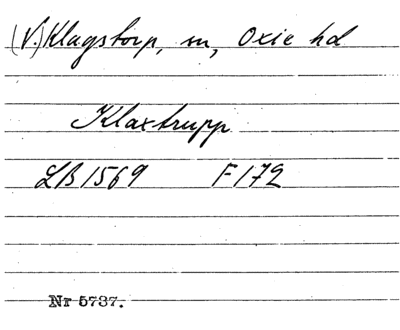 (V.) Klagstorp, sn, Oxie hd
Klaxtrupp
LB 1569 F 172
Nr 5737.